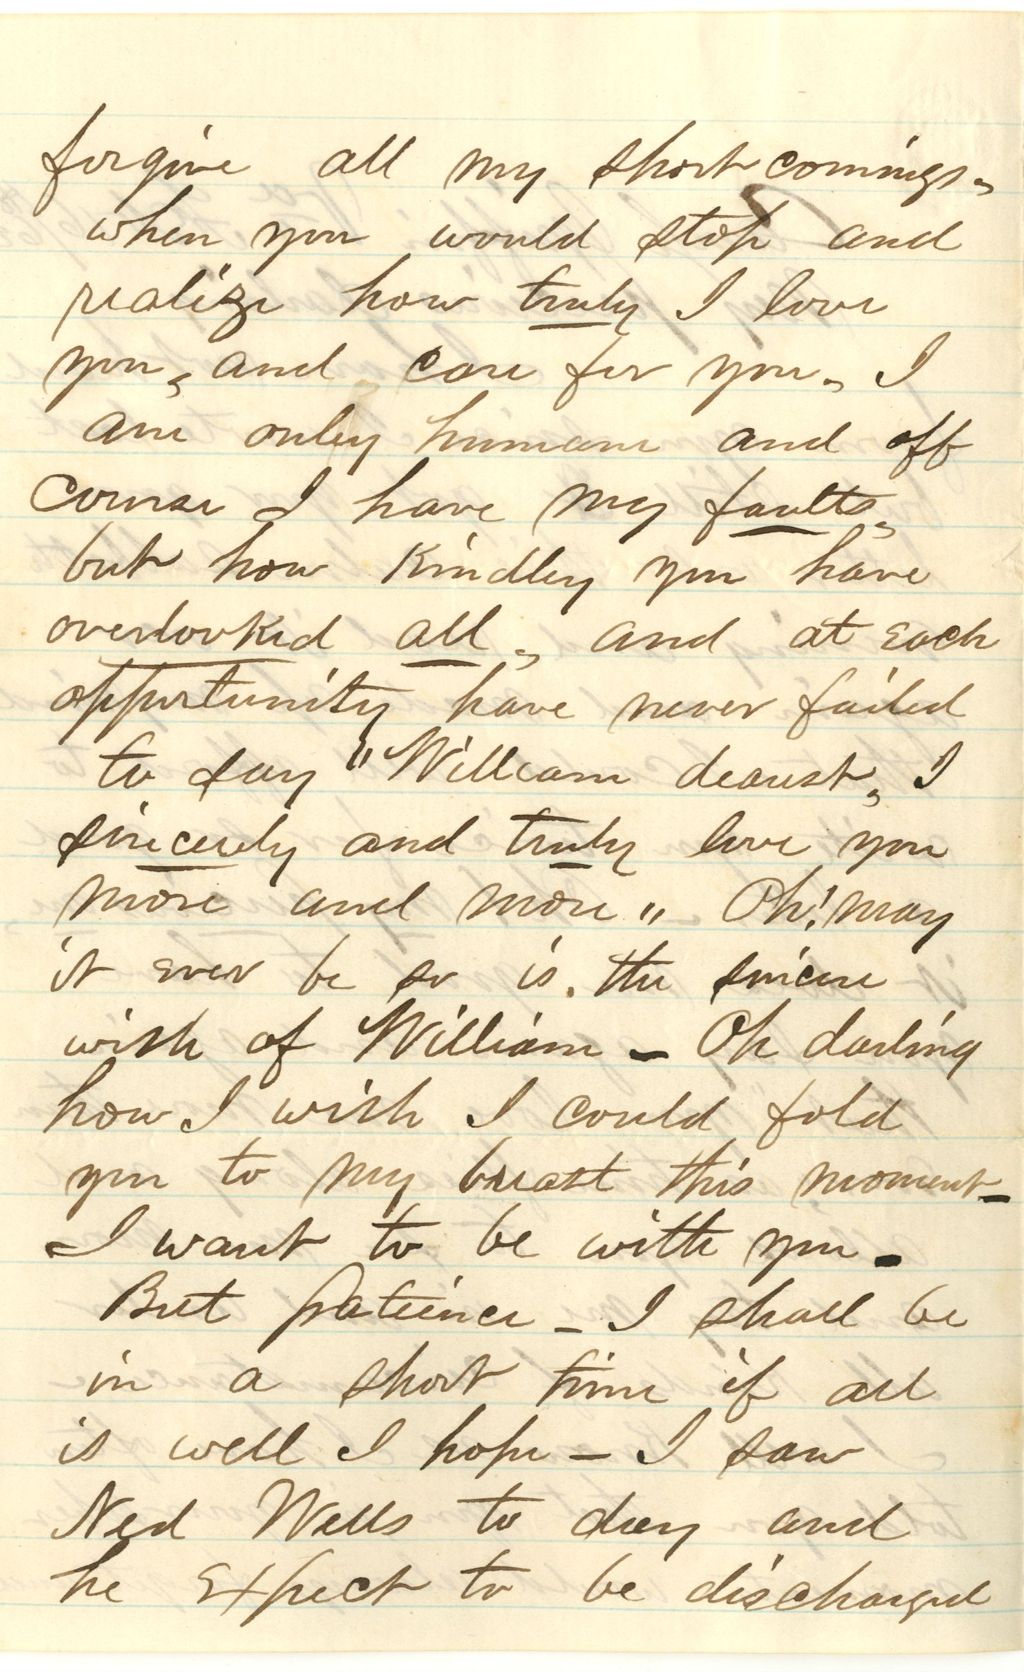 forgive all my short comings,
when you would stop and
realize how truly I love
you, and care for you, I
am only humane and off
course I have my faults,
but how Kindley you have
overlooked all, and at each
opportunity have never failed
to say "William dearest, I
sincerely and truly love you
more and more" Oh! may
it ever be so is the sincere
wish of William - Oh darling
how I wish I could fold
you to my breast this moment -
I want to be with you -
But patience - I shall be
in a short time if all
is well I hope - I saw
Ned Wells to day and
he expect to be discharged